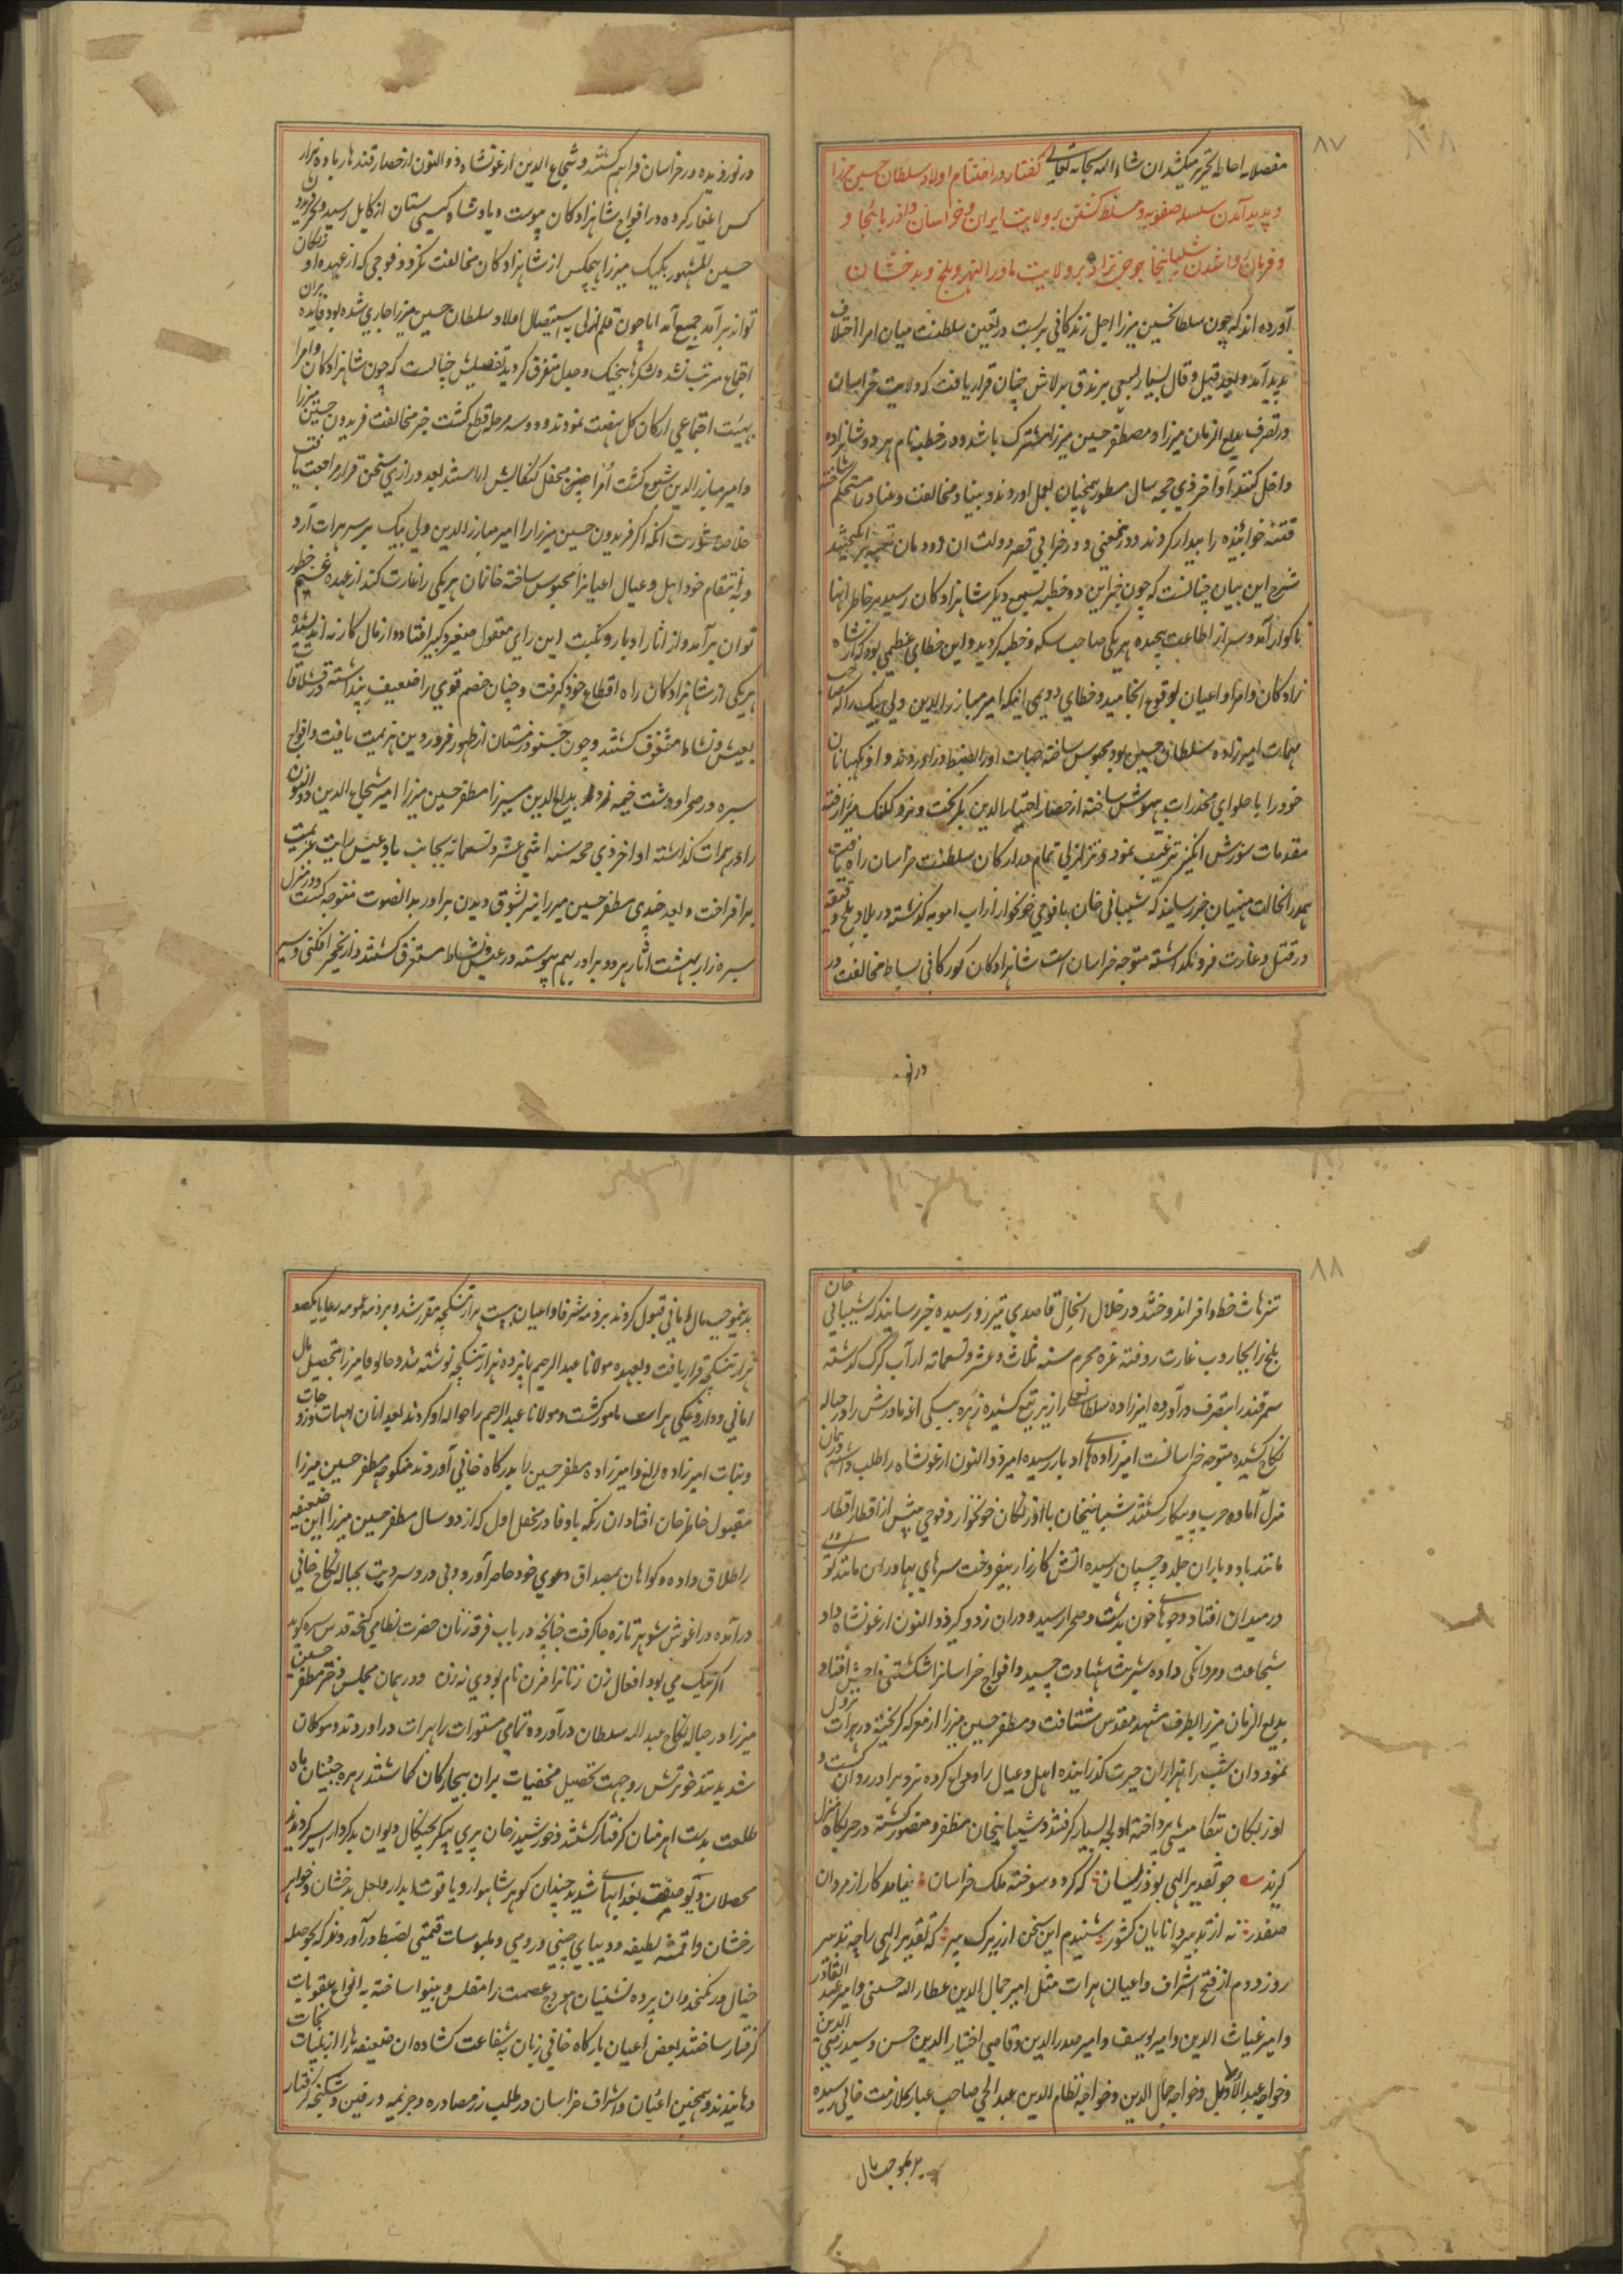 ۸۷
مفصلا به احاطه تحریر میکشد ان شاء الله سبحانه تعالی گفتار در اختتام اولاد سلطان حسین میرزا
و پدید آمدن سلسله صفویه و مسلط گشتن بر ولایت ایران و خراسان و اذربایجان و
و فرمان روا شدن شیبانیخان جوجی نژاد بر ولایت ماورالنهر و بلخ و بدخشان
آورده اند که چون سلطانحسین میرزا اجل زندگانی بربست در تعین سلطنت میان امرا اختلاف
پدید آمد و بعد قیل و قال بسیار بسعی برندق برلاش چنان قرار یافت که ولایت خراسان
در تصرف بدیع الزمان میرزا و مصطفر حسین میرزا مشترک باشد و در خطبه نام هر دو شاهزاده
داخل کنند آواخر ذی حجه سال مسطور همچنان بعمل اوردند و بنیاد مخالفت و عناد را مستحکم ساخته
فتنه خوابیده را بیدار کردند و در معنی در خرابی قصر دولت ان دودمان
شرح این بیان چنانست که چون خبر این دو خطبه بسمع دیگر شاهزادگان رسید بر خاطر انها
ناگوار آمد و سر از اطاعت پیچیده هر یکی صاحب سکه و خطبه گردید و این خطای عظیمی بود که از شاه
زادگان و امرا و اعیان بوقوع انجامید و خطای دویمی اینکه امیر مبارز الدین ولی بیک را که صاحب
مهمات امیرزاده سلطان حسین بود محبوس ساخته جهات اورا بضبط در اوردند و او نکهبانان
خود را با حلوای مخدرات بیهوش ساخته از حصار اختیار الدین بگریخت و نزد کپک میرزا رفته
مقدمات شورش انگیز ترغیب نمود و تزلزلی تمام در ارکان سلطنت خراسان راه یافت
همدر انحالت منهیان خبر رسانیدند که شیبانی خان با فوجی خونخوار از اب امویه گذشته در بلاد بلخ دقیقه
در قتل و غارت فرو نگداشته متوجه خراسان است شاهزادگان کورکانی بساط مخالفت در
در نو
در نوردیده در خراسان فراهم گشتند و شجاع الدین ارغونشاه ذوالنون از حصار قندهار با ده هزار
کس ایلغار کرده در افواج شاهزادگان پیوست و پادشاه گیتی ستان از کابل رسید و بجز فریدون
حسین المشهور بکپک میرزا هیچکس از شاهزادگان مخالفت نکرد و فوجی که از عهده او زبکان
تواند برآمد جمیع آمد اما چون قلم ازلی به استیصال اولاد سلطان حسین میرزا جاری شده بود فایده بران
اجتماع مرتب نشد و لشکرها بیجنگ و جدل متفرق گردید تفصیلش چنانست که چون شاهزادگان و امرا
بهیئت اجتماعی ارکان کل نهضت نمودند و دو سه مرحله قطع گشت خبر مخالفت فریدون حسین میرزا
و امیر مبارز الدین شیوع گشت امرا محفل کنکایش اراستند بعد درازی سخن قرار مراجعت یافت
خلاصه مشورت انکه اکر فریدون حسین میرزا را امیر مبارز الدین ولی بیک بر سر هرات آرد
و به انتقام خود اهل و عیال اعیانرا محبوس ساخته خانمان هریکی را غارت کند از عهده غنیم چطور
توان برآمد و از اثار ادبار و نکبت این رای معقول صغیر و کبیر افتاده و از مال کار نه اندیشیده
هریکی از شاهزادگان راه اقطاع خود گرفت و چنان خصم قوی را ضعیف پنداشته در قشلاقات
بعیش و نشاط مشغوف گشتند و چون جنود زمستان از ظهور فروردین هزیمت یافت و افواج
سبزه در صحرا و دشت خیمه زد بدیع الدین میرزا مظفر حسین میرزا امیر شجاع الدین ذوالنون
را در هرات گذاشته اواخر ذی حجه سنه اثنی عشر و تسعمائه بجانب بادغیش رایت عزیمت
برافراخت و بعد چندی مظفر حسین میرزا نیز بشوق دیدن برادر بدانصوب متوجه گشت و در منزل
سبزه زار بهشت اثار هر دو برادر بهم پیوسته در عیش و نشاط مستغرق گشتند و از نخجیر افکنی و سیر
۸۸
تنزهات خط وافر اندوختند در خلال انحال قاصدی تیزرو رسیده خبر رسانید که شیبانی خان
بلخ را بجاروب غارت روفته غره محرم سنه ثلاث و عشر و تسعمائه از آب کرک گذشته
سمرقند را بتصرف درآورده امیرزاده سلطانعلی را زیر تیغ کشیده زهره بیکی اغه مادرش را در حباله
نکاح کشیده متوجه خراسانست امیرزاده های ادبار رسیده امیر ذوالنون ارغونشاه را طلب داشته در همان
منزل آماده حرب و پیکار گشتند شیبانیخان با اوزبکان خونخوار و فوجی بیش از اقطار اقطار
مانند باد و باران جلد و چسپان رسیده اتش کارزار بیفروخت سرهای بهادران مانند گوی
در میدان افتاد و جوهای خون بدشت و صحرا رسید و دران زد و گیر ذوالنون ارغونشاه داد
شجاعت و مردانگی داده شربت شهادت چسپید و افواج خراسانرا شکستی فاحش افتاد
بدیع الزمان میرزا بطرف مشهد مقدس شتافت و مظفر حسین میرزا از معرکه گریخته در هرات نزول
نمود و ان شب را هزاران حیرت گذرانیده اهل و عیال را وداع کرده نزد برادر روان گشت و
اوزبکان تنکا میشی پرداخته اولجه بسیار گرفتند و شیبانیخان مظفر و منصور گشته در حربگاه منزل
گزید چو تقدیر الهی بود زینسان که گردد سوخته ملک خراسان نیامد کار از مردان
صفدر نه از تدبیر دانایان کشور شنیدم این سخن از زیرک پیر که تقدیر الهی راچه تدبیر
روز دوم از فتح اشراف و اعیان هرات مثل امیر جمال الدین عطار الله حسنی و امیر عبد القادر
و امیر غیاث الدین و امیر یوسف و امیر صدر الدین و قاضی اختیار الدین حسن و سید رضی الدین
و خواجه عبد الاول و خواجه جمال الدین و خواجه نظام الدین عبد الحی صاحب عیار بملازمت خانی رسیده
بدینموجب مال
بدینموجب مال امانی قبول کردند بر ذمه شرفا و اعیان بیست هزار تنکچه مقرر شد و بر ذمه عمومه رعایا یکصد
هزار تنکچه قرار یافت و بعهده مولانا عبد الرحیم پانزده هزار تنکچه نوشته شد و جان وفا میرزا بتحصیل مال
امانی و داروغگی هرات مامور گشت و مولانا عبد الرحیم را حواله او کردند بعد ازان امهات و زوجات
و بنات امیرزاده الغ و امیرزاده مظفر حسین را بدرگاه خانی آوردند منکوحه مظفر حسین میرزا
مقبول خاطر خان افتاد ان زنکه باوفا در محفل اول که از دو سال مظفر حسین میرزا این ضعیفه
را طلاق داده و گواهان بمصداق دعوی خود حاضر آورد و بی دردسر دیت بحباله نکاح خانی
درآمده در اغوش شوهر تازه جا گرفت چنانچه در باب فرقه زنان حضرت نظامی گنجه قدس سره گوید
اگر نیک می بود افعال زن زنانرا مزن نام بودی نه زن و در همان مجلس دختر مظفر حسین
میرزا در حباله نکاح عبد الله سلطان درآورده تمامی مستورات را بهرات دراوردند و موکلان
شدید تند خو ترش رو جهت تحصیل مخفیات بران بیچارگان گماشتند زهره جبینان ماه
طلعت بدست اهرمنان گرفتار گشتند و خورشید رخان پری پیکر بچنگال دیوان بدکردار اسیر گردیدند
محصلان دیو صفت بعذابهای شدید چندان گوهر شاهوار و یاقوت ابدار و لعل بدخشان و جواهر
رخشان و اقمشه لطیفه و دیبای چینی و رومی و ملبوسات قیمتی بضبط درآوردند که بحوصله
خیال در نگنجد و ان پرده نشینان هودج عصمت را مفلس و بینوا ساخته به انواع عقوبات
گرفتار ساختند بعض اعیان بارگاه خانی زبان بشفاعت گشاده ان ضعیفه ها را از بلیات نجات
دهانیدند و همچنین اعیان و اشراف خراسان در طلب زر مصادره و جریمه در قین و شکنجه گرفتار